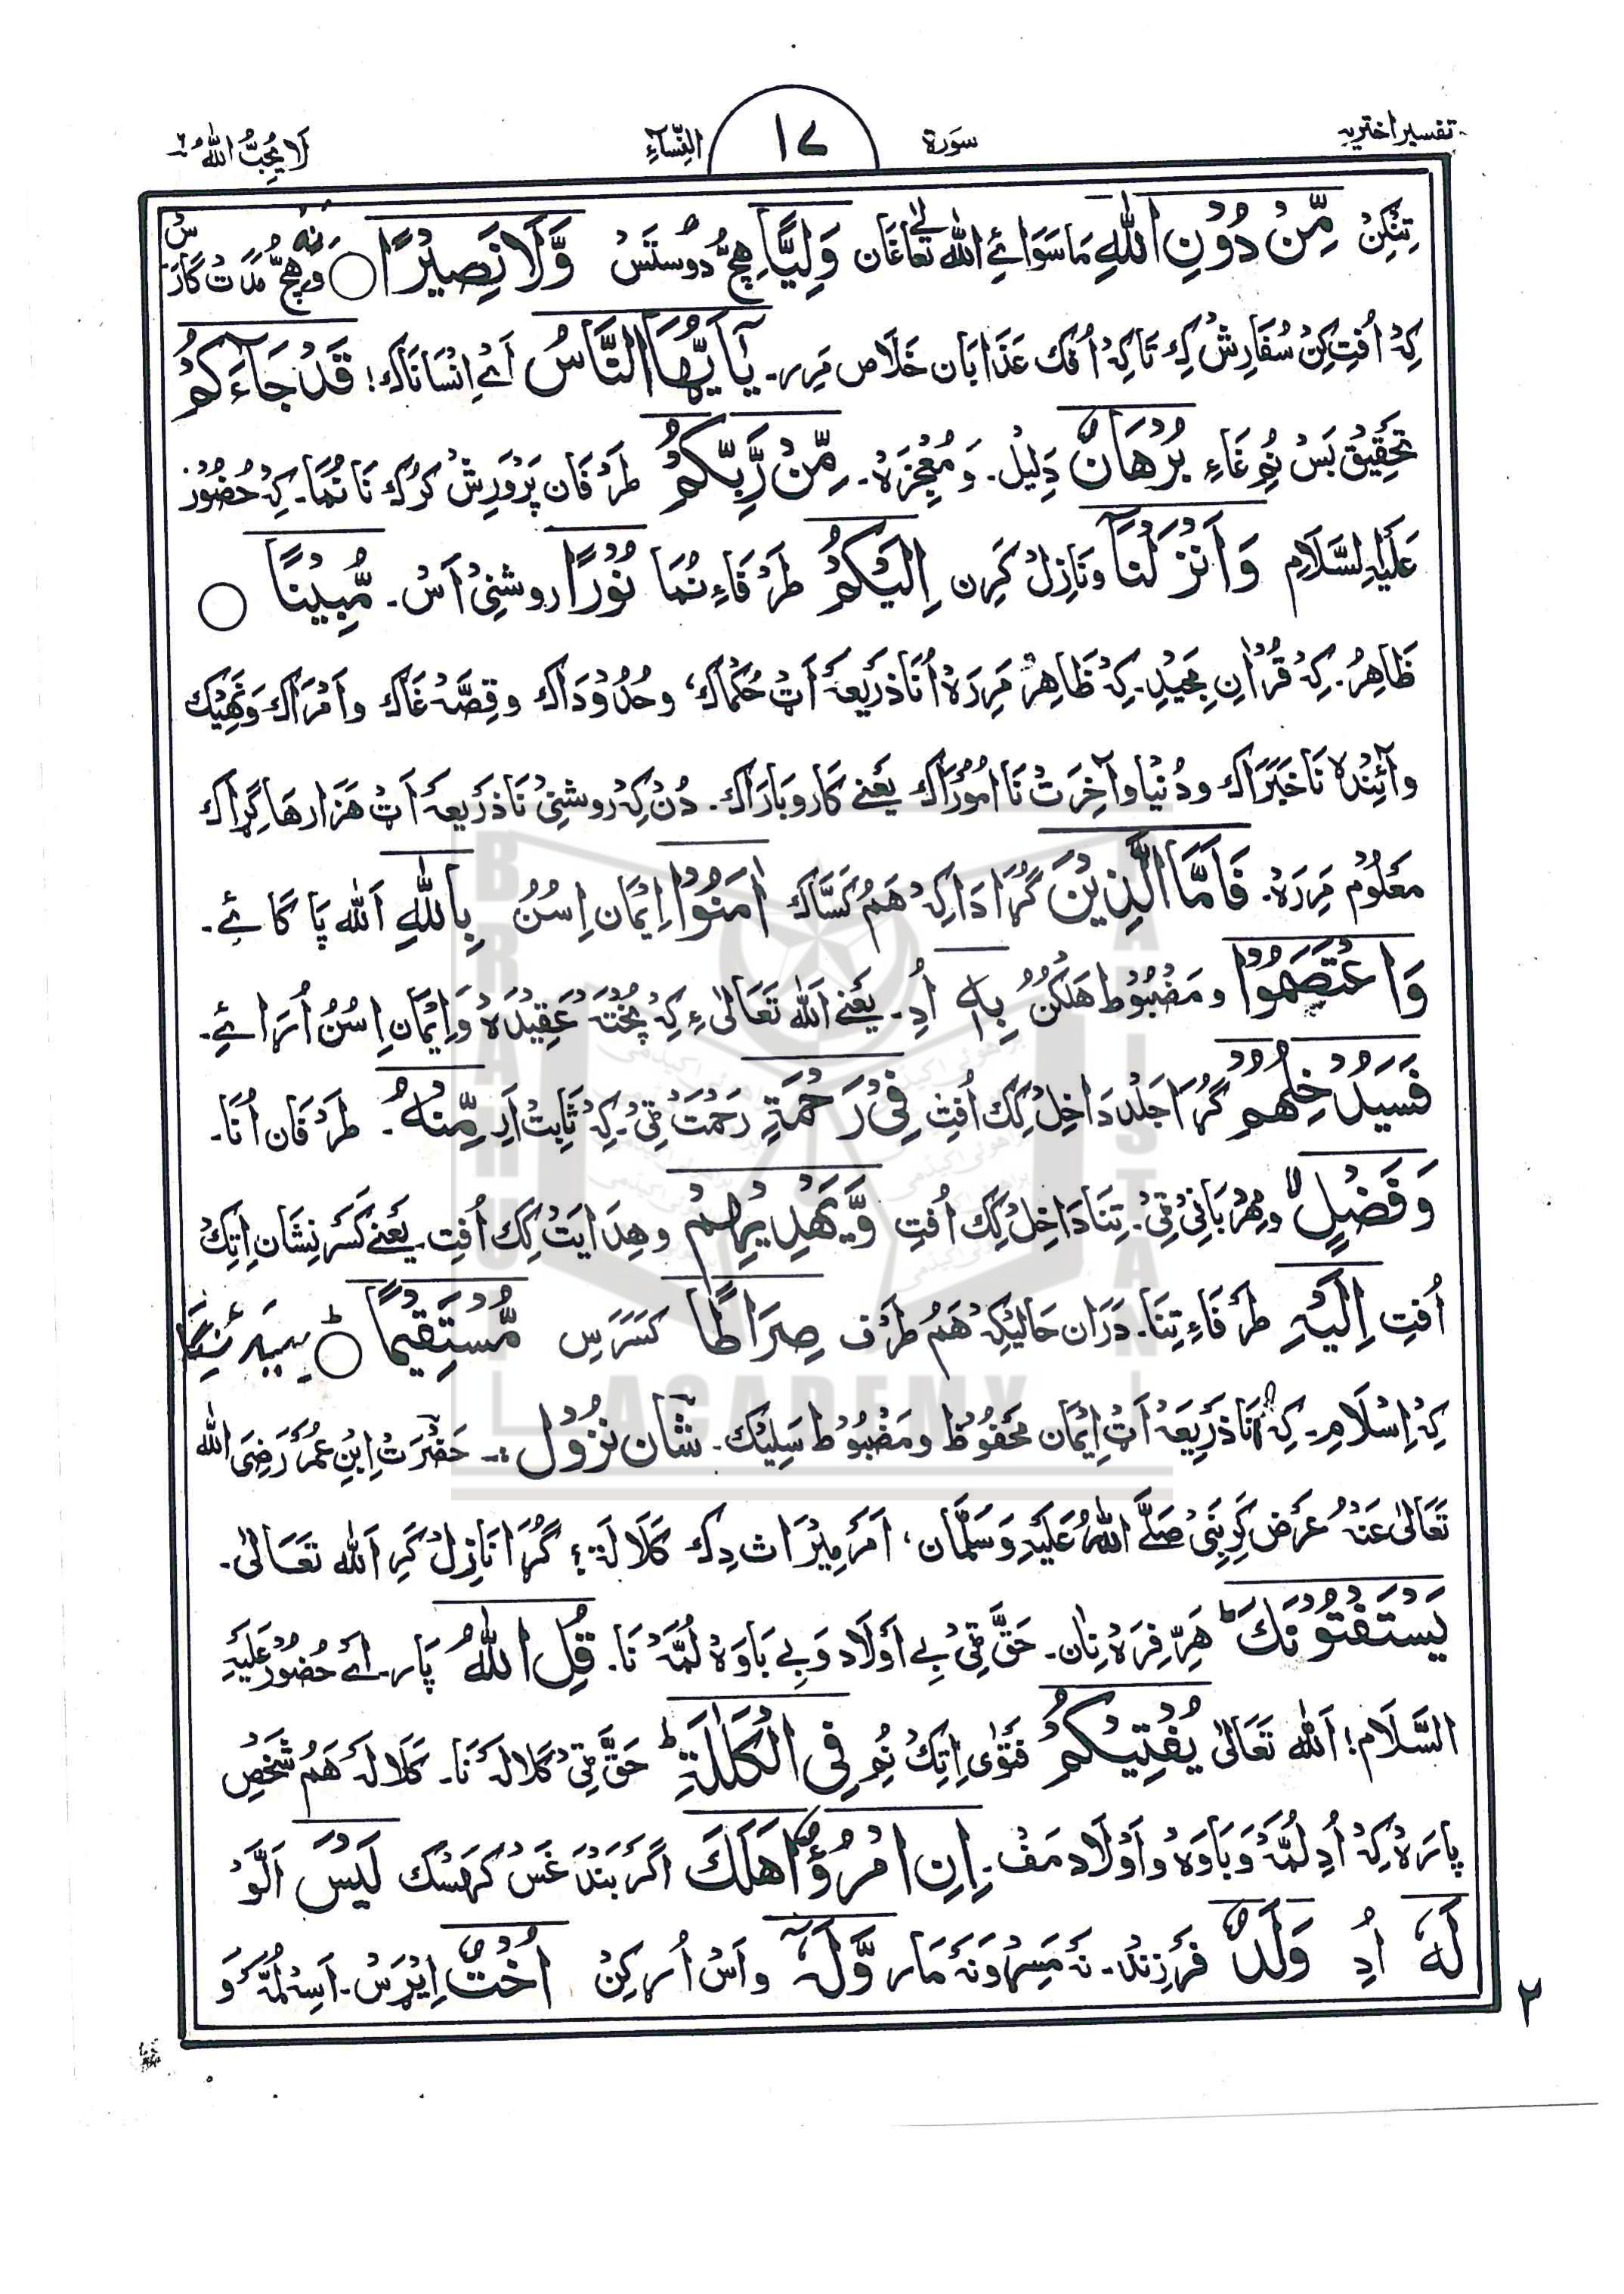 تفسیر اختریہ سورۃ ١٧ النِّسَآءِ لَا یُحِبُّ اللّٰہُ ٦
تِنْکِنْ مِّنْ دُوْنِ اللّٰہِ مَا سَوَائے اللّٰہ تعالےٰ غَان وَلِیًّا ہِچُّ دوستَسْ وَّلَا نَصِیْرًا ○ وَ نَہ ہِچُّ مَدَت گارَسْ
کِہْ اُفتِکِنْ سُفَارِشْ کِہ تَا کِہْ اُفک عَذَابَان خَلَاص مَرِر۔ یٰٓاَیُّھَا النَّاسُ اَے اِنْسَانَاک! قَدْ جَآءَکُمْ
تَحَقِیْق بَسْ نُمِ غَاءِ بُرْھَانٌ دِلِیْل۔ وَمُعْجِزَہ۔ مِّنْ رَّبِّکُمْ طَرَفَان پَرْوَرِشْ کرُک نَا نُمَا۔ کِہْ حُضُوْر
عَلَیْہِ السَّلَام وَاَنْزَلْنَآ و نَازِلْ کَرِن اِلَیْکُمْ طَرَفَاءِ نُمَا نُوْرًا روشنِیْ اَسْ۔ مُّبِیْنًا ○
ظَاہِرُ۔ کِہْ قُرْاٰنِ مَجِیْدِ۔ کِہْ ظَاہِرْ مَرِرَہْ اُنَا ذَرِیعَہ اَٹ حُکْمَاک، وحُدُوْدَاک و قِصَّہ غَاک و اَمْرَاک وَنَھِیْک
و آئِنْدہ نَا خَبَرَاک و دُنْیَا و آخِرَتْ نَا اُمُوْرَاک یَعْنے کَار و بَارَاک۔ دُنْ کِہْ روشنِیْ نَا ذَرِیعَہ اَٹ ھَزَارھَا گِڑاک
مَعْلُوْم مَرِرَہْ۔ فَاَمَّا الَّذِیْنَ گُڑَا دَا کِہْ ھَمُ کَسَّاک اٰمَنُوْا اِیْمَان اِسُنُ بِاللّٰہِ اَللّٰہ پَا کَا ئے۔
وَاعْتَصَمُوْا و مَضْبُوْط ھَلَکُنُ بِہٖ اُدِ۔ یَعْنے اَللّٰہ تَعَالٰی ءِ کِہْ پُخْتَہ عَقِیْدَہ وَاِیْمَان اِسُنُ اُرَائے۔
فَسَیُدْخِلُھُمْ گُڑَا جَلْد دَاخِلْ کِک اُفتِ فِیْ رَحْمَۃٍ رَحْمَتْ ٹِیْ۔ کِہْ ثَابِتْ اَرِ مِّنْہُ۔ طَرَفَان اُنَا۔
وَفَضْلٍ و مِھْرْبَانِیْ ٹِیْ۔ تِنَا دَاخِلْ کِک اُفتِ وَّیَھْدِیْھِمْ و ھِدَایَتْ کِک اُفتِ۔ یَعْنے کَسَر نِشَان اِتِکْ
اُفتِ اِلَیْہِ طَرَفَاءِ تِنَا۔ دَرَان حَالیکِہْ ھَمُ طَرَف صِرَاطًا کَسَرَس مُّسْتَقِیْمًا ○
کِہْ اِسْلَام۔ کِہْ اُنَا ذَرِیعَہ اَٹ اِیْمَان مَحْفُوْظ و مَضْبُوْط سَلِیْک۔ شَان نُزُوْل :۔ حَضْرَتْ اِبْنِ عُمَر رَضِیَ اللّٰہ
تَعَالٰی عَنْہُ عَرَض کَرِ نَبِیْ صَلَّے اللّٰہُ عَلَیْہِ وَسَلَّمَان، اَمَر مِیْرَاث دِک کَلَالَہ؟ گُڑَا نَازِلْ کَرِ اَللّٰہ تَعَالٰی۔
یَسْتَفْتُوْنَکَ ھَرِّفِرَہ نِان۔ حَقّ ٹِیْ بے اَوْلَاد وَ بے بَاوَہ لُمَّہ نَا۔ قُلِ اللّٰہُ پَار۔ اَے حُضُوْر عَلَیْہِ
السَّلَام! اَللّٰہ تَعَالٰی یُفْتِیْکُمْ فَتْوٰی اِتِکْ نُمِ فِی الْکَلٰلَۃِ حَقّ ٹِیْ کَلَالَہ نَا۔ کَلَالَہ ھَمُ شَخْصِ
پارَہ کِہْ اُدِ لُمَّہ وَ بَاوَہ وَ اَوْلَاد مَف۔ اِنِ امْرُؤٌا ھَلَکَ اگَر بَنْدَغَسْ کَہْسک لَیْسَ اَلَّوْ
لَہٗ اُدِ وَلَدٌ فَرْزِنْد۔ نَہ مَسِہْ وَنَہ مَار وَّلَہٗٓ وَ اَسْ اُر کِنْ اُخْتٌ اِیْڑَسْ۔ اَسِہ لُمَّہ وَ
٢
BRAHUI
ACADEMY